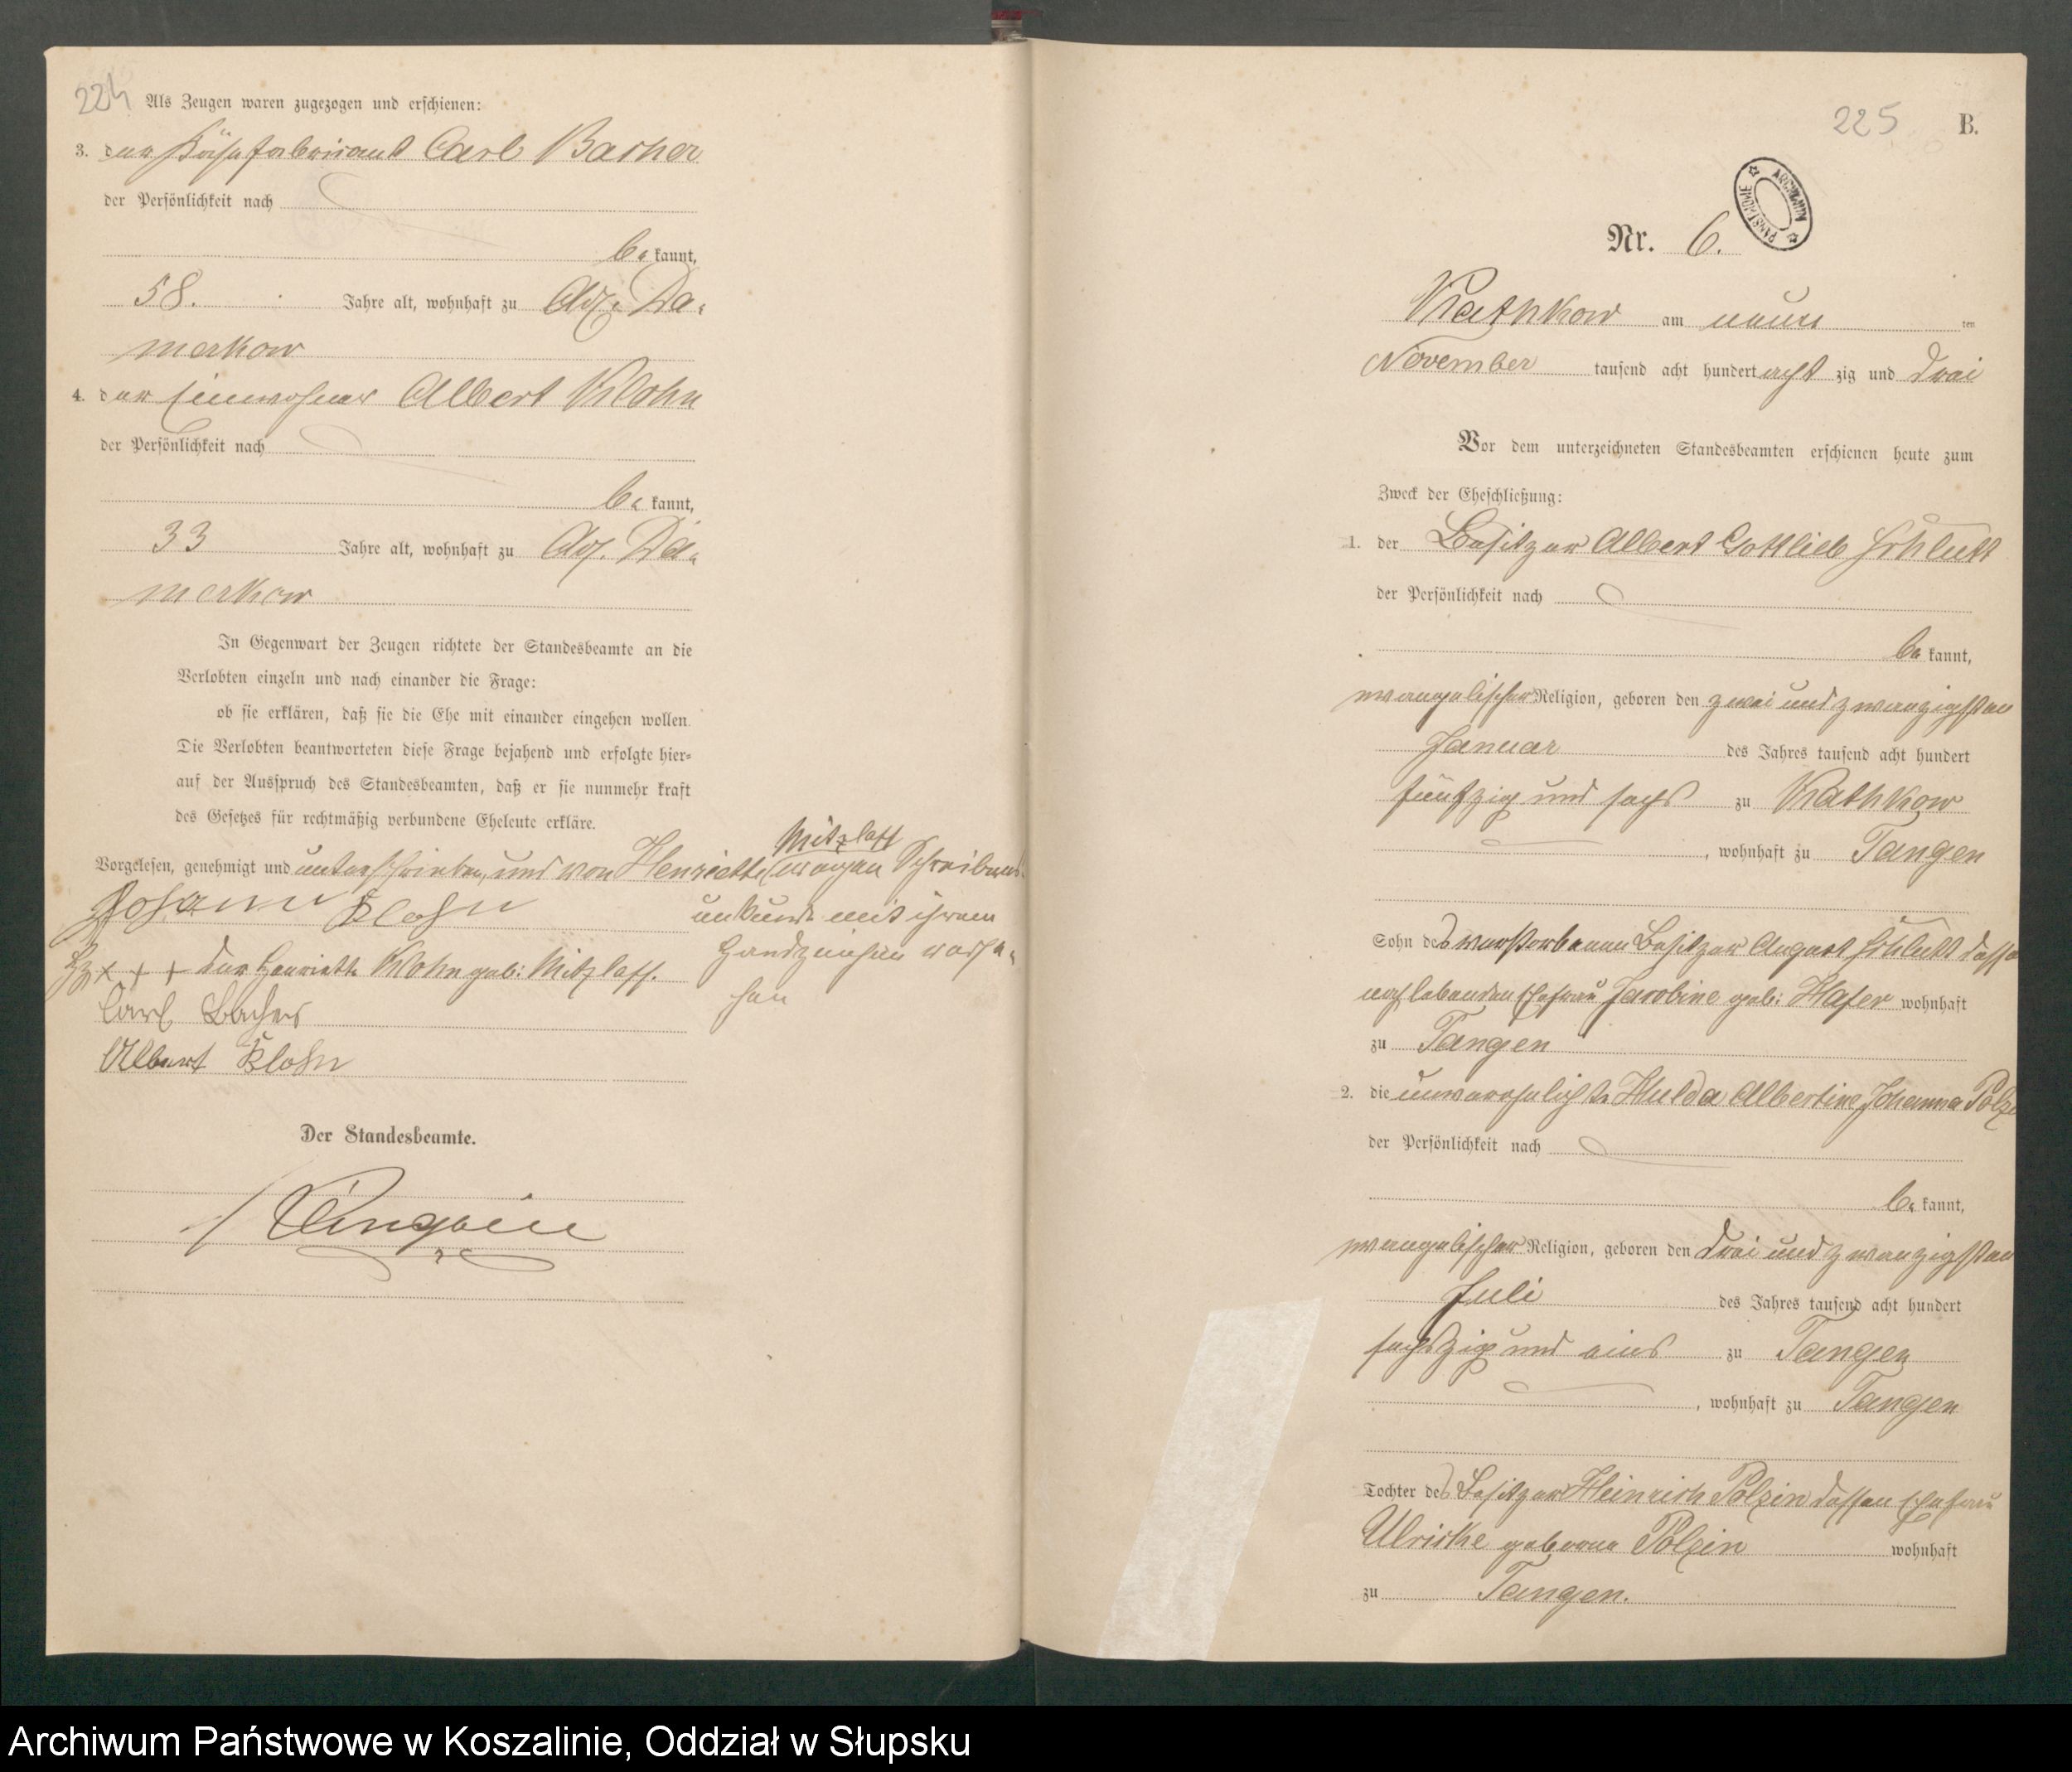 224
Als Zeugen waren zugezogen und erschienen:
3. der Käsefabrikant Carl Bacher
der Persönlichkeit nach
be kannt,
58. Jahre alt, wohnhaft zu Adl. Da-
merkow
4. der Einwohner Albert Klohn
der Persönlichkeit nach
be kannt,
33 Jahre alt, wohnhaft zu Adl. Da-
merkow
In Gegenwart der Zeugen richtete der Standesbeamte an die
Verlobten einzeln und nach einander die Frage:
ob sie erklären, daß sie die Ehe mit einander eingehen wollen.
Die Verlobten beantworteten diese Frage bejahend und erfolgte hier-
auf der Ausspruch des Standesbeamten, daß er sie nunmehr kraft
des Gesetzes für rechtmäßig verbundene Eheleute erkläre.
Mitzlaff
Vorgelesen, genehmigt und unterschrieben, und von Henriette wegen Schreibens
unkunde mit ihrem
Handzeichen verse-
hen
Johann Klohn
Hz + + + der Henriette Klohn geb: Mitzlaff.
Carl Bacher
Albert Klohn
Der Standesbeamte.
225 B.
ARCHIWUM PAŃSTWOWE
Nr. 6.
Rathkow am neun ten
November tausend acht hundert acht zig und drei
Vor dem unterzeichneten Standesbeamten erschienen heute zum
Zweck der Eheschließung:
1. der Besitzer Albert Gottlieb Schlutt
der Persönlichkeit nach
be kannt,
evangelischer Religion, geboren den zwei und zwanzigsten
Januar des Jahres tausend acht hundert
fünfzig und sechs zu Rathkow
, wohnhaft zu Tangen
Sohn des verstorbenen Besitzer August Schlutt dessen
noch lebenden Ehefrau Jacobine geb: Hafer wohnhaft
zu Tangen
2. die unverehelichte Hulda Albertine Johanna Polzin
der Persönlichkeit nach
be kannt,
evangelischer Religion, geboren den drei und zwanzigsten
Juli des Jahres tausend acht hundert
sechszig und eins zu Tangen
, wohnhaft zu Tangen
Tochter des Besitzer Heinrich Polzin dessen Ehefrau
Ulricke geborene Polzin wohnhaft
zu Tangen.
Archiwum Państwowe w Koszalinie, Oddział w Słupsku